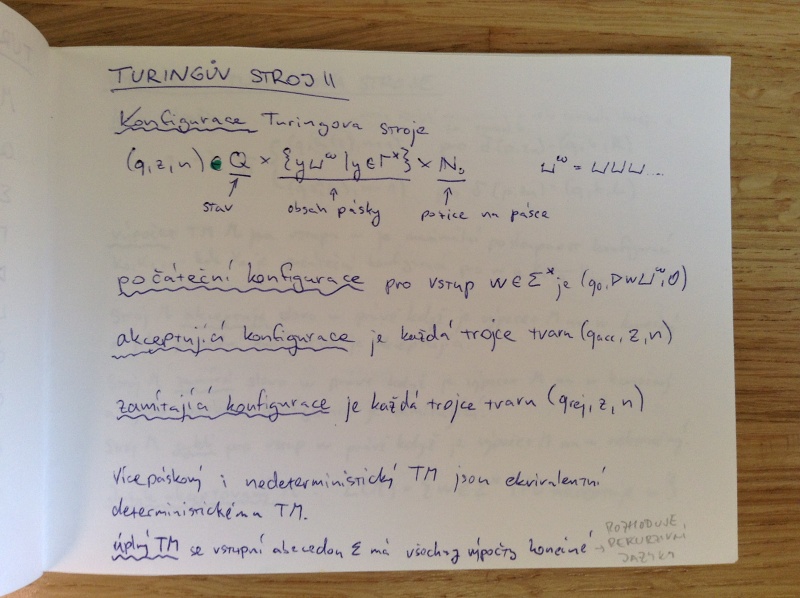 TURINGŮV STROJ II
Konfigurace Turingova stroje
(q,z,n) ∈ Q × {y⊔^ω | y∈Γ*} × ℕ₀ ⊔^ω = ⊔⊔⊔...
stav obsah pásky pozice na pásce
počáteční konfigurace pro vstup w∈Σ* je (q₀,▷w⊔^ω,0)
akceptující konfigurace je každá trojce tvaru (qacc, z, n)
zamítající konfigurace je každá trojce tvaru (qrej, z, n)
vícepáskový i nedeterministický TM jsou ekvivalentní
deterministickému TM.
úplný TM se vstupní abecedou Σ má všechny výpočty konečné → ROZHODUJE
REKURZIVNÍ
JAZYKY